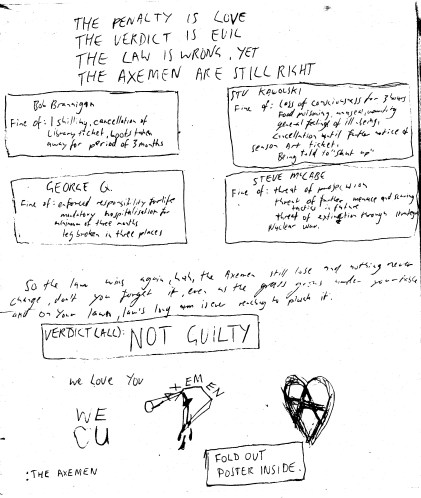 THE PENALTY IS LOVE
THE VERDICT IS EVIL
THE LAW IS WRONG, YET
THE AXEMEN ARE STILL RIGHT
Bob Brannigan
Fine of: 1 shilling, cancellation of
library ticket, boots taken
away for period of 3 months
STU KAWOLSKI
Fine of: Loss of consciousness for 3 hours
Food poisoning, nausea, vomiting
general feelings of ill-being.
Cancellation until further notice of
season Art ticket.
Being told to "shut up"
GEORGE G.
Fine of: enforced responsibility for life
mandatory hospitalisation for
minimum of three months
leg broken in three places
STEVE McCABE
Fine of: threat of prosecution
threat of further menace and
tactics in future
threat of extinction through strategic
Nuclear war.
So the law wins again, huh, the Axemen still lose and nothing never
change, don't you forget it, even as the grass grows under your table
and on your lawn, law's long arm is ever reaching to pluck it.
VERDICT (ALL): NOT GUILTY
we Love You
AXEMEN
WE
CU
A
: THE AXEMEN
FOLD OUT
POSTER INSIDE.